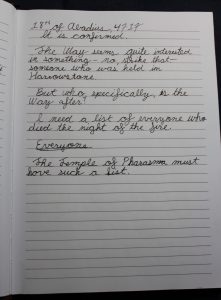 18th of Abadius, 4719
It is confirmed.
The Way seems quite interested
in something - no, strike that -
someone who was held in
Harrowstone.
But who, specifically, is the
Way after?
I need a list of everyone who
died the night of the fire.
Everyone.
The Temple of Pharasma must
have such a list.